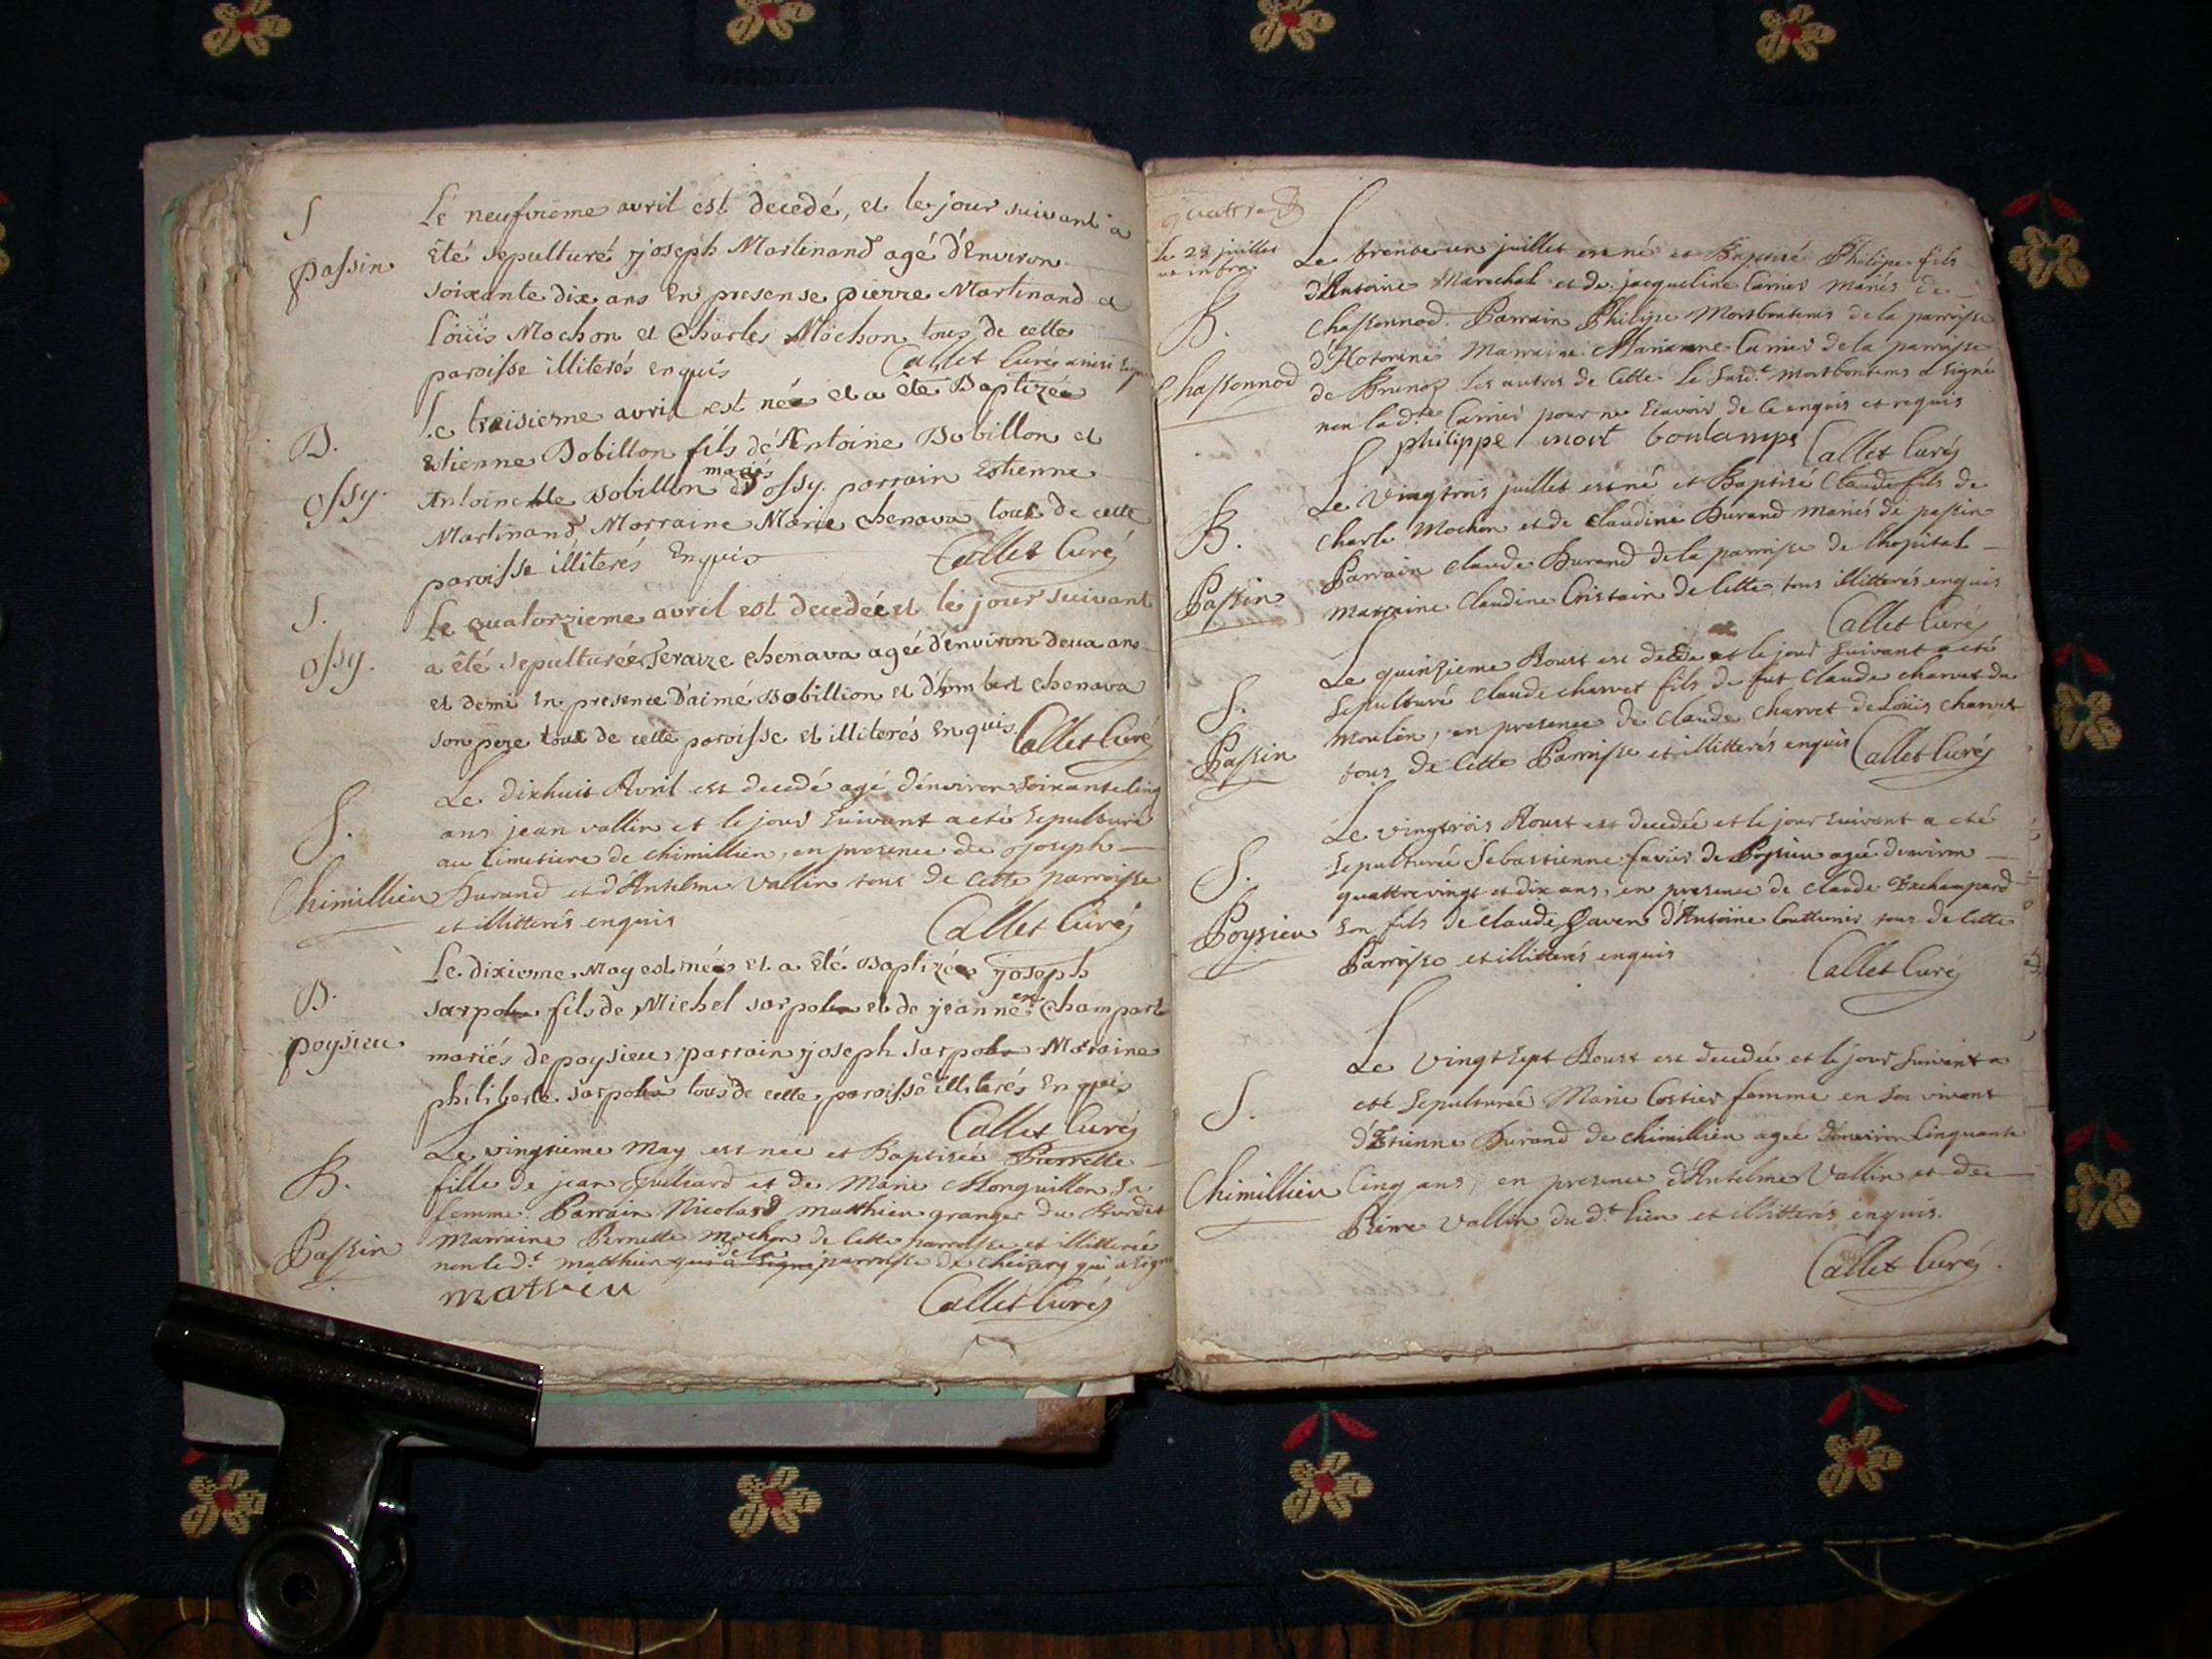 S
passin
Le neufvieme avril est decedé, et le jour suivant a
êté sepulturé joseph Martinand agé d'Environ
soixante dix ans En presense pierre Martinand et
Loüis Mochon et Charles Mochon tous de cette
paroisse illiterés enquis Callet Curé ainsi signé
B.
ossy.
Le troisieme avril est née et a êté Baptizée
Etienne Bobillon fils de Antoine Bobillon et
Antoinette Bobillon mariés d'ossy. parrain Estienne
Martinand, Marraine Marie chenava tous de cette
paroisse illiterés Enquis Callet Curé
S.
ossy.
Le quatorzieme avril est decedée et le jour suivant
a êté sepulturée chenava agée d'environ deux ans
et demi En presence D'aimé Bobillion et d'humbert chenava
son pere tous de cette paroisse et illiterés Enquis. Callet Curé
S.
Chimillieu
Le dixhuit Avril est decedé agé d'environ soixante cinq
ans jean vallin et le jour suivant a eté sepulturé
au cimetiere de chimillieu, en presence de joseph
Durand et d'Anselme Vallin tous de cette parroisse
et illitterés enquis Callet Curé
B.
poysieu
Le dixieme May est née et a êté Baptizée joseph
fils de Michel et de jeanne en champart
mariés de poysieu, parrain joseph Maraine
philiberte tous de cette paroisse illiterés Enquis
Callet Curé
B.
Passin
Le vingtieme May est nee et Baptisée Pierrette
fille de jean Julliard et de Marie Monguillon sa
femme. Parrain Nicolas Matthieu granger du Burdet
Marraine Pernette Mochon de Cette parroisse et illitterée
non le d.t matthieu qui a signé de la parroisse de cheisery qui a signé
mathieu Callet Curé
quattre
Le 23 juillet
ut infra
B.
Chassonnod
Le trente un juillet est né et Baptisé Philipe fils
d'Antoine Marechal et de jacqueline Carrier Mariés de
Chassonnod. Parrain Philipe Mortboutems de la parroisse
d'Hotonne Marraine Marianne Carrier de la parroisse
de Brenoz Les autres de Cette Le Susd.t Mortboutems a signé
non lad.te Carrier pour ne scavoir de ce enquis et requis
philippe mort boutamps Callet Curé
B.
Passin
Le Vingtrois juillet est né et Baptisé Claude fils de
Charle Mochon et de Claudine Durand mariés de passin
Parrain Claude Durand de la parroisse de Lhopital
marraine Claudine Cristain de Cette tous illitterés enquis
Callet Curé
S.
Passin
Le quinzieme Aoust est decede et le jour suivant a eté
Sepulturé Claude charvet fils de fut Claude charvet du
moulin, en presence de Claude Charvet de Loüis charvet
tous de Cette Parroisse et illitterés enquis Callet Curé
S.
Poysieu
Le vingtrois Aoust est decedée et le jour suivant a eté
sepulturée Sebastienne favier de Poysieu agée d'environ
quattre vingt et dix ans, en presence de Claude Enchampard
son fils de Claude d'Antoine tous de Cette
Parroisse et illitterés enquis Callet Curé
S.
Chimillieu
Le Vingt sept Aoust est decedée et le jour suivant a
eté sepulturée Marie Costier femme en son vivant
d'Etienne Durand de chimillieu agée d'environ Cinquante
Cinq ans, en presence d'Anselme Vallin et de
Pierre Vallin du d.t lieu et illitterés enquis.
Callet Curé.